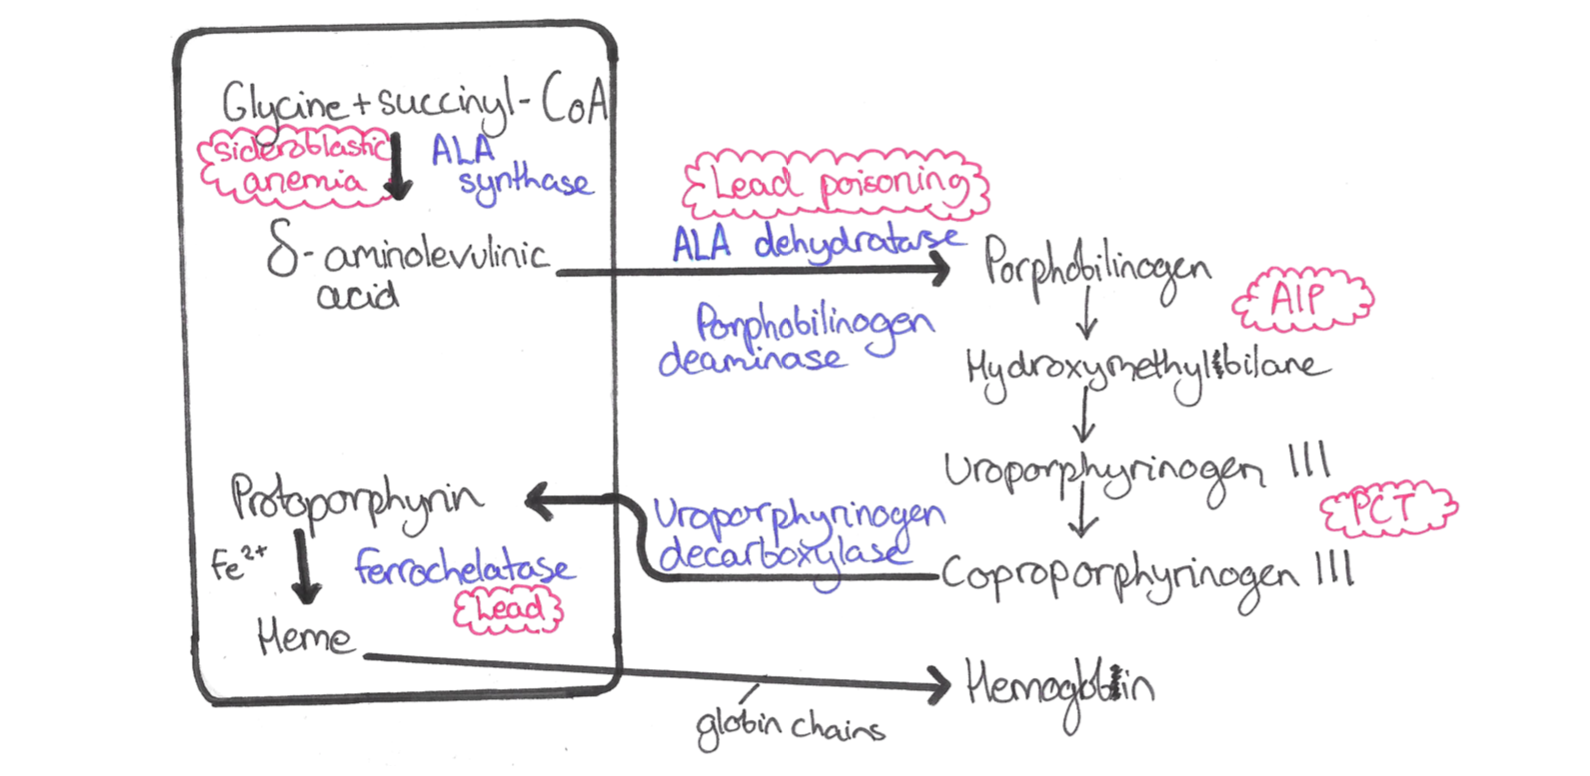 Glycine + succinyl-CoA
sideroblastic
anemia
ALA
synthase
δ-aminolevulinic
acid
Lead poisoning
ALA dehydratase
Porphobilinogen
AIP
Porphobilinogen
deaminase
Hydroxymethylbilane
Uroporphyrinogen III
PCT
Uroporphyrinogen
decarboxylase
Coproporphyrinogen III
Protoporphyrin
Fe²⁺
ferrochelatase
Lead
Heme
globin chains
Hemoglobin